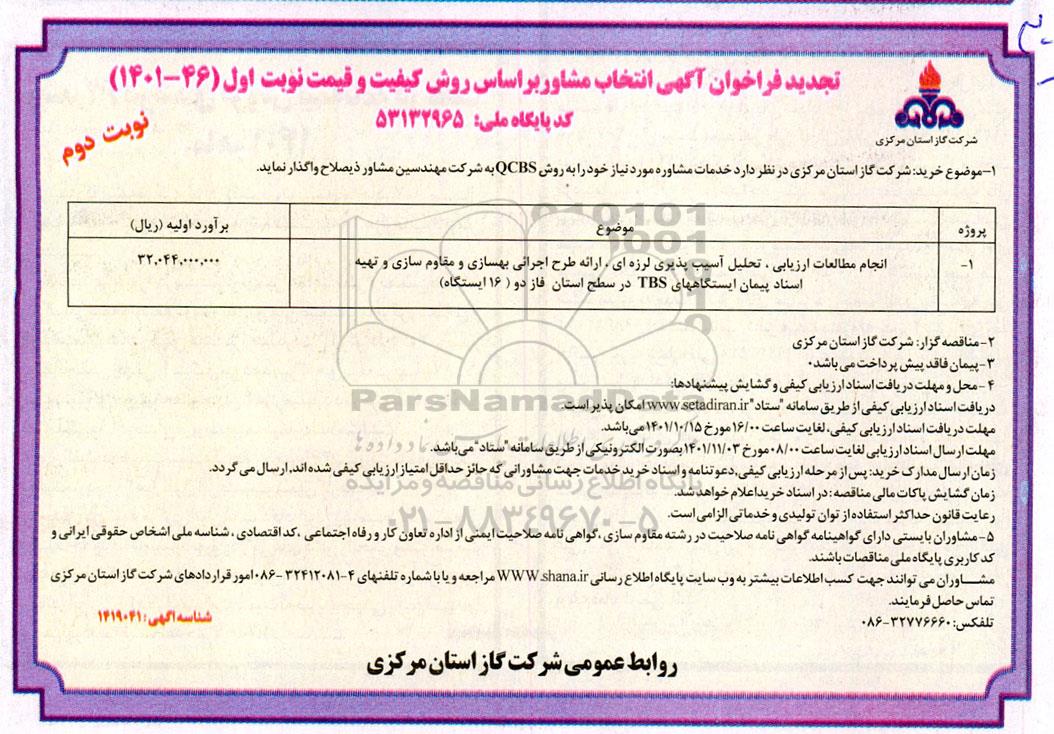 تجدید فراخوان آگهی انتخاب مشاور براساس روش کیفیت و قیمت نوبت اول (۴۶-۱۴۰۱)
کد پایگاه ملی: ۵۳۱۳۲۹۶۵
نوبت دوم
شرکت گاز استان مرکزی
۱-موضوع خرید: شرکت گاز استان مرکزی در نظر دارد خدمات مشاوره مورد نیاز خود را به روش QCBS به شرکت مهندسین مشاور ذیصلاح واگذار نماید.
پروژه موضوع برآورد اولیه (ریال)
۱- انجام مطالعات ارزیابی ، تحلیل آسیب پذیری لرزه ای ، ارائه طرح اجرائی بهسازی و مقاوم سازی و تهیه ۳۲,۰۴۴,۰۰۰,۰۰۰
اسناد پیمان ایستگاههای TBS در سطح استان فاز دو ( ۱۶ ایستگاه)
۲-مناقصه گزار: شرکت گاز استان مرکزی
۳-پیمان فاقد پیش پرداخت می باشد۰
۴- محل و مهلت دریافت اسناد ارزیابی کیفی و گشایش پیشنهادها:
دریافت اسناد ارزیابی کیفی از طریق سامانه "ستاد" www.setadiran.ir امکان پذیر است.
مهلت دریافت اسناد ارزیابی کیفی، لغایت ساعت ۱۶/۰۰ مورخ ۱۴۰۱/۱۰/۱۵ می باشد.
مهلت ارسال اسناد ارزیابی لغایت ساعت ۰۸/۰۰ مورخ ۱۴۰۱/۱۱/۰۳ بصورت الکترونیکی از طریق سامانه "ستاد" می باشد.
زمان ارسال مدارک خرید: پس از مرحله ارزیابی کیفی، دعوتنامه و اسناد خرید خدمات جهت مشاورانی که حائز حداقل امتیاز ارزیابی کیفی شده اند، ارسال می گردد.
زمان گشایش پاکات مالی مناقصه : در اسناد خرید اعلام خواهد شد.
رعایت قانون حداکثر استفاده از توان تولیدی و خدماتی الزامی است.
۵-مشاوران بایستی دارای گواهینامه گواهی نامه صلاحیت در رشته مقاوم سازی ، گواهی نامه صلاحیت ایمنی از اداره تعاون کار و رفاه اجتماعی ، کد اقتصادی ، شناسه ملی اشخاص حقوقی ایرانی و
کد کاربری پایگاه ملی مناقصات باشند.
مشاوران می توانند جهت کسب اطلاعات بیشتر به وب سایت پایگاه اطلاع رسانی WWW.shana.ir مراجعه و یا با شماره تلفنهای ۴-۳۲۴۱۲۰۸۱-۰۸۶ امور قراردادهای شرکت گاز استان مرکزی
تماس حاصل فرمایند.
تلفکس: ۳۲۷۷۶۶۶۰-۰۸۶
شناسه آگهی: ۱۴۱۹۰۴۱
روابط عمومی شرکت گاز استان مرکزی
ParsNamadData
پایگاه اطلاع رسانی مناقصه و مزایده
۰۲۱-۸۸۳۴۹۶۷۰-۵